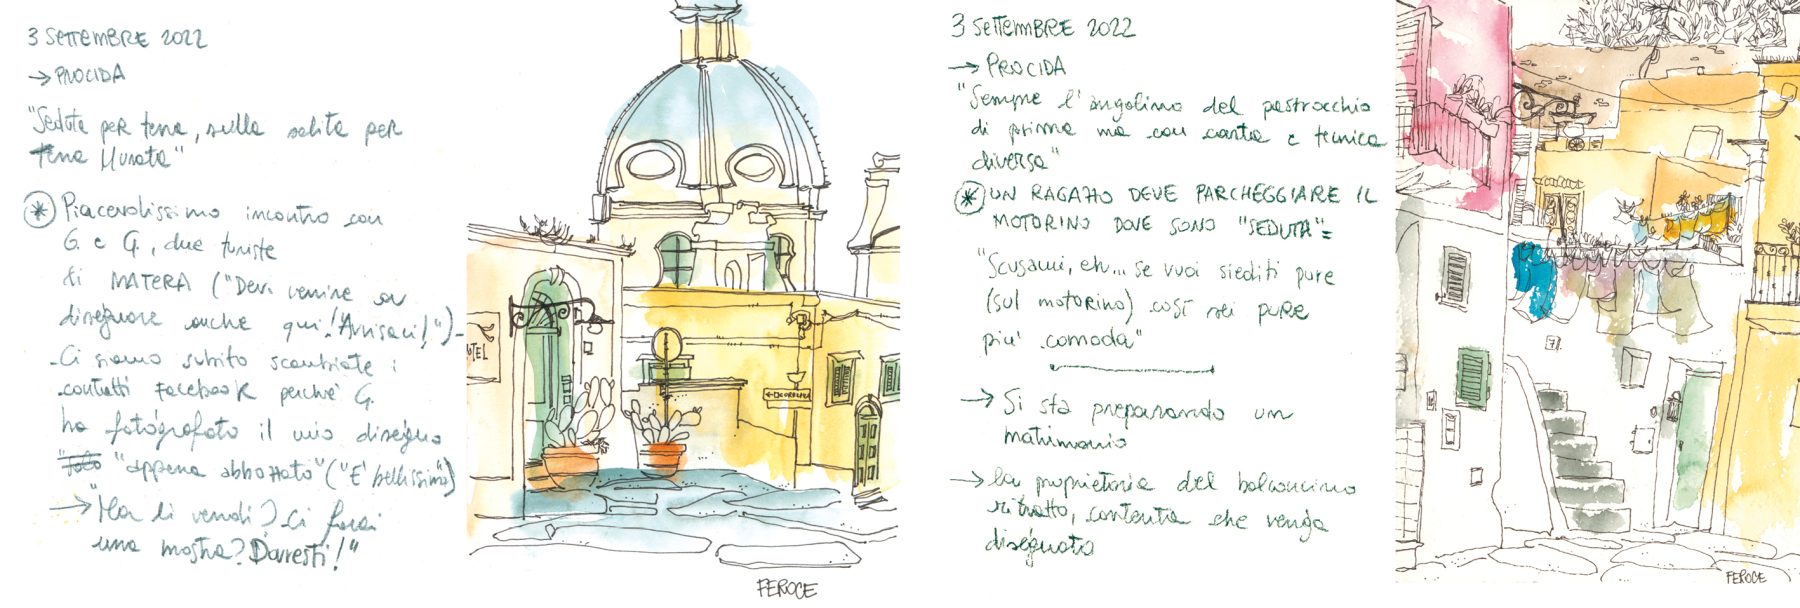 3 SETTEMBRE 2022
→ PROCIDA
"Seduta per terra, sulla salita per
Terra Murata"
* Piacevolissimo incontro con
G. e G., due turiste
di MATERA ("Devi venire a
disegnare anche qui! Avvisaci!")-
-Ci siamo subito scambiate i
contatti Facebook perché G.
ha fotografato il mio disegno
"appena abbozzato" ("E' bellissimo")
→ "Ma li vendi? Ci farai
una mostra? Dovresti!"
HOTEL
FEROCE
3 SETTEMBRE 2022
→ PROCIDA
"Sempre l'angolino del pastrocchio
di prima ma con carta e tecnica
diversa"
* UN RAGAZZO DEVE PARCHEGGIARE IL
MOTORINO DOVE SONO "SEDUTA"=
"Scusami, eh... se vuoi siediti pure
(sul motorino) così sei pure
più comoda"
→ Si sta preparando un
matrimonio
→ la proprietaria del balconcino
ritratto, contenta che venga
disegnato
7
FEROCE